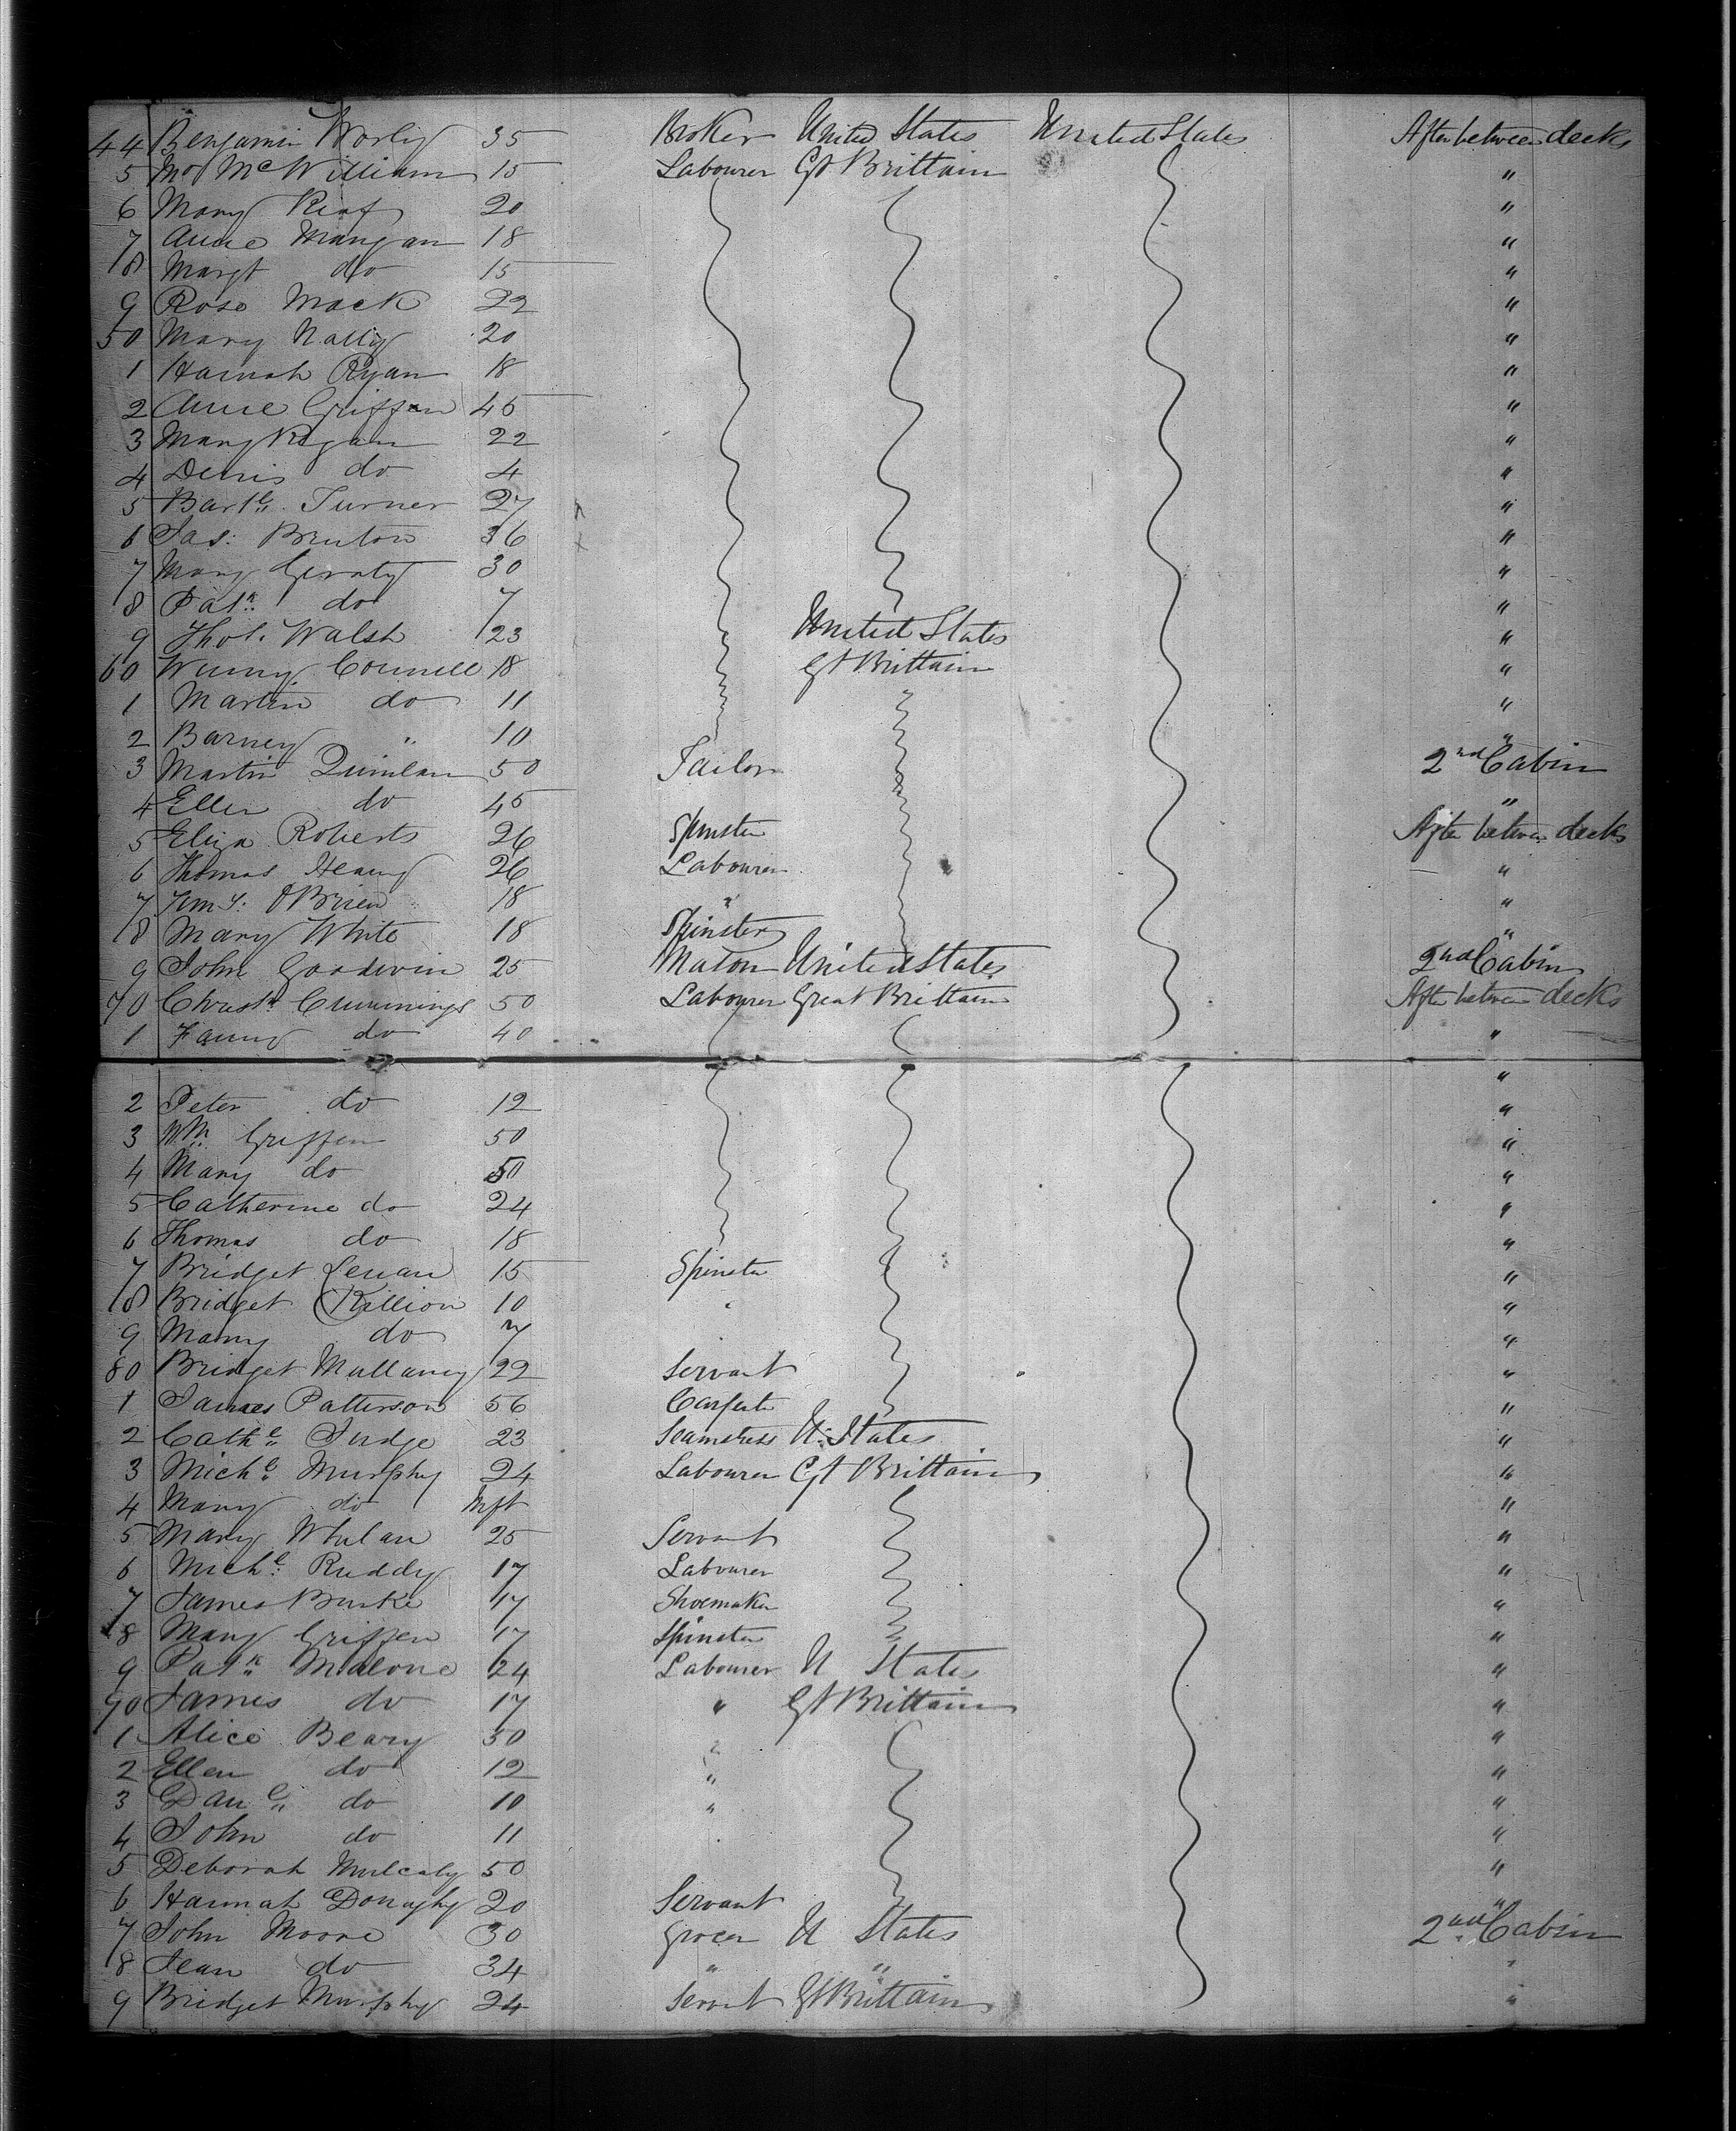 44 Benjamin Worly 35 Broker United States United States After between decks
5 McWilliam 15 Labourer Gt Brittain "
6 Mary 20 "
7 Anne Mangan 18 "
8 Margt do 15 "
9 Rose Mack 22 "
50 Mary Nally 20 "
1 Hannah Ryan 18 "
2 Anne Griffen 45 "
3 Mary Regan 22 "
4 Denis do 4 "
5 Turner 27 "
6 Jas: Bruton 36 "
7 Mary Geraty 30 "
8 Patk do 7 "
9 Thos. Walsh 23 United States "
60 Winny Connell 18 Gt Brittain "
1 Martin do 11 "
2 Barney " 10 "
3 Martin Quinlan 50 Tailor 2nd Cabin
4 Ellen do 45 "
5 Eliza Roberts 26 Spinster After between decks
6 Thomas 26 Labourer "
7 O'Brien 18 " "
8 Mary White 18 Spinster "
9 John Goodwin 25 Mason United States 2nd Cabin
70 Cummings 50 Labourer Great Brittain After between decks
1 Fanny do 40 "
"
2 Peter do 12 "
3 Wm Griffen 50 "
4 Mary do 50 "
5 Catherine do 24 "
6 Thomas do 18 "
7 Bridget Lenan 15 Spinster "
8 Bridget Killion 10 "
9 Mary do 7 "
80 Bridget Mullaney 22 Servant "
1 James Patterson 56 Carpenter "
2 Cathe Judge 23 Seamstress U. States "
3 Michl Murphy 24 Labourer Gt Brittain "
4 Mary do Inft "
5 Mary Whelan 25 Servant "
6 Michl Ruddy 17 Labourer "
7 James Burke 17 Shoemaker "
8 Mary Griffen 17 Spinster "
9 Patk Malone 24 Labourer U States "
90 James do 17 " Gt Brittain "
1 Alice Beary 50 " "
2 Ellen do 12 " "
3 Danl do 10 " "
4 John do 11 "
5 Deborah Mulcahy 50 "
6 Hannah Donaghy 20 Servant "
7 John Moore 30 Grocer U States 2nd Cabin
8 Jean do 34 " " "
9 Bridget Murphy 24 Servant Gt Brittain "